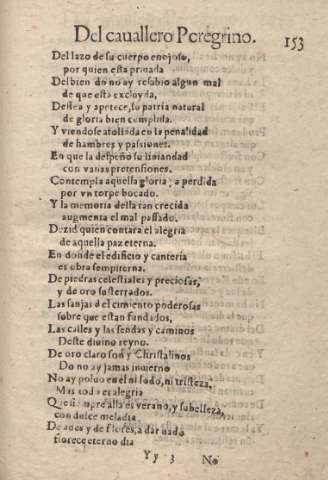 Del cauallero Peregrino. 153
Del lazo de su cuerpo enojoso,
por quien esta priuada
Del bien do no ay resabio algun mal
de que esta excluyda,
Dessea y apetece, su patria natural
de gloria bien cumplida.
Y viendose atollada en la penalidad
de hambres y passiones.
En que la despeño su liuiandad
con vanas pretensiones.
Contempla aquella gloria, a perdida
por vn torpe bocado.
Y la memoria della tan crecida
augmenta el mal passado.
Dezid quien contara el alegria
de aquella paz eterna.
En donde el edificio y canteria
es obra sempiterna.
De piedras celestiales y preciosas,
y de oro susterrados.
Las sanjas del cimiento poderosas
sobre que estan fundados,
Las calles y las sendas y caminos
Deste diuino reyno.
De oro claro son y Christalinos
Do no ay jamas inuierno
No ay poluo en el ni lodo, ni tristeza,
Mas todo es alegria
Que siempre alla es verano, y su belleza,
con dulce melodia
De aues y de flores, a dar nado
florece eterno dia
Yy 3 No